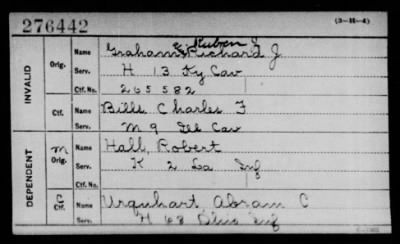 276442
(3-H-4)
INVALID
Orig.
Name Graham, Richard J
Serv. H 13 Ky Cav
Ctf. No. 265582
Ctf.
Name Bills Charles F
Serv. M 9 Ill Cav
DEPENDENT
M
Orig.
Name Hall, Robert
Serv. K 2 La Inf
Ctf. No.
C
Ctf.
Name Urquhart Abram C
Serv. H 68 Ohio Inf